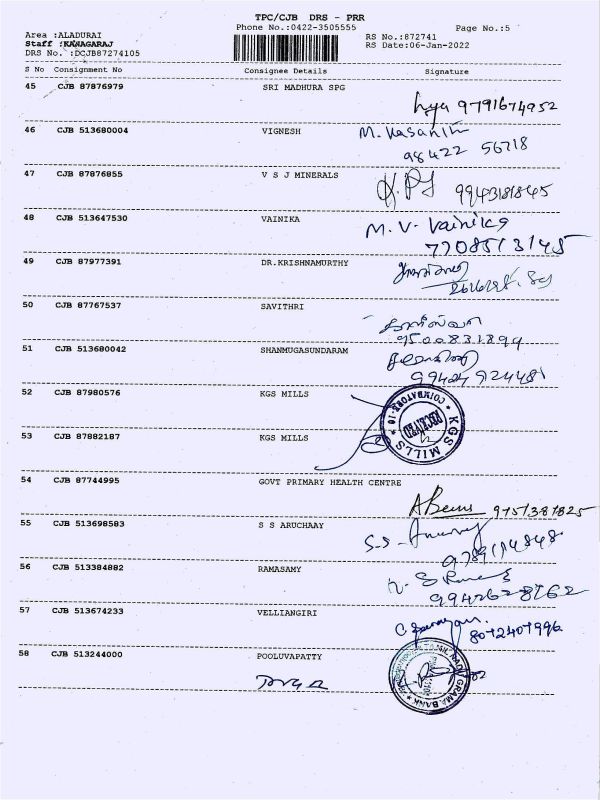 TPC/CJB DRS - PRR
Phone No.:0422-3505555
Page No.:5
Area :ALADURAI
RS No.:872741
Staff :KANAGARAJ
RS Date:06-Jan-2022
DRS No. :DCJB87274105
S No Consignment No Consignee Details Signature
45 CJB 87876979 SRI MADHURA SPG
9791674952
46 CJB 513680004 VIGNESH M. Vasanth
98422 56718
47 CJB 87876855 V S J MINERALS
9943181845
48 CJB 513647530 VAINIKA M. V. Vainika
7708513145
49 CJB 87977391 DR.KRISHNAMURTHY
50 CJB 87767537 SAVITHRI
9500831894
51 CJB 513680042 SHANMUGASUNDARAM
52 CJB 87980576 KGS MILLS
KGS MILLS * COIMBATORE-10 *
RECEIVED
53 CJB 87882187 KGS MILLS
54 CJB 87744995 GOVT PRIMARY HEALTH CENTRE
9751381825
55 CJB 513698583 S S ARUCHAAY
56 CJB 513384882 RAMASAMY
57 CJB 513674233 VELLIANGIRI
8072407996
58 CJB 513244000 POOLUVAPATTY
GRAMA BANK